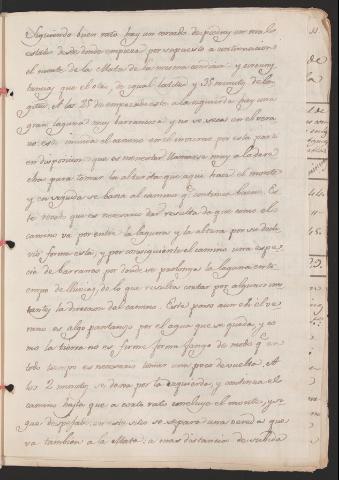 Siguiendo buen rato hay un corral de piedra en mal
estado desde donde empieza por supuesto a continuacion
el monte de la Mata de la misma
que el otro, de igual latitud y 35 minutos de lon
gitud. A los 25 de empezado este a la izquierda hay una
gran laguna muy barrancosa y no se seca en el vera
no: esta inunda el camino en el invierno por esta parte
en disposicion que es menester llamarse muy a la dere
cha para tomar la altura que aqui hace el monte
y en seguida se baja al camino q.e continua bueno. Es
te rodeo que es necesario dar resulta de que como el
camino va por entre la laguna y la altura por su decli
vio forma esta, y por consiguiente el camino una espe
cie de barranco por donde se prolonga la laguna en ti
empo de lluvias, de lo que resulta cortar por algunos ins
tantes la direccion del camino. Este paso aun en el ve
rano es algo pantanoso por el agua que se queda, y co
mo la tierra no es firme forma fango de modo q.e en
todo tiempo es necesario tomar un poco de vuelta. A
los 2 minutos se deja por la izquierda, y continua el
camino hasta que a corto rato concluye el monte, y si
gue despejado: en este sitio se separa una vereda que
va tambien a la Mata: a mas distancia de subida